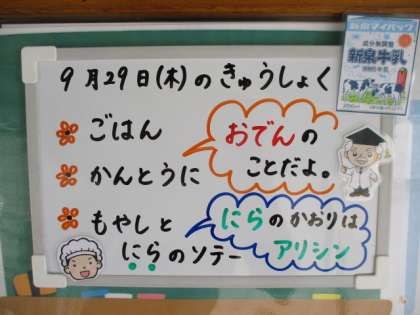 9月29日(木)のきゅうしょく
ごはん
かんとうに
もやしと
にらのソテー
おでんの
ことだよ。
にらのかおりは
アリシン
新泉牛乳